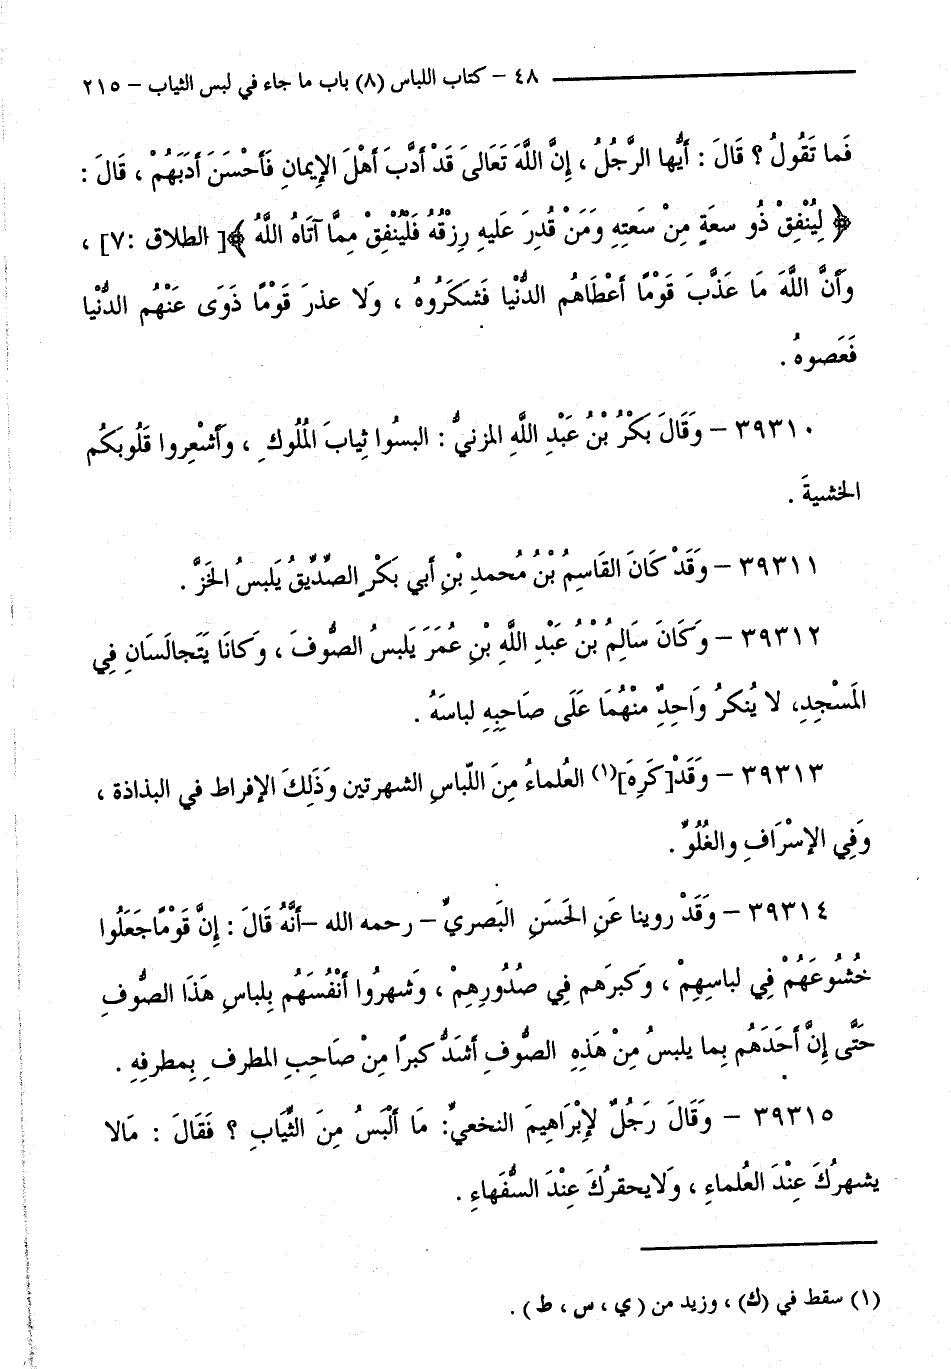 ٤٨ – كتاب اللباس (٨) باب ما جاء في لبس الثياب – ٢١٥
فَما تَقُولُ ؟ قَالَ : أَيُّها الرَّجُلُ ، إِنَّ اللَّهَ تَعَالىَ قَدْ أَدَّبَ أَهْلَ الإِيمانِ فَأَحْسَنَ أَدَبَهُمْ ، قَالَ :
﴿ لِيُنْفِقْ ذُو سعَةٍ مِنْ سَعَتِهِ وَمَنْ قُدِرَ عَليهِ رِزْقُهُ فَلْيُنْفِقْ مِمَّا آتَاهُ اللَّهُ ﴾[ الطلاق :٧] ،
وَأَنَّ اللَّهَ مَا عَذَّبَ قَوْمًا أَعْطَاهُم الدُّنْيا فَشكَرُوهُ ، وَلا عذرَ قَوْمًا ذَوَى عَنْهُم الدُّنْيا
فَعَصوهُ .
٣٩٣١٠ – وَقَالَ بَكْرُ بْنُ عَبْدِ اللَّهِ المزنيُّ : البسُوا ثِيابَ المُلُوكِ ، وَأَشْعِروا قَلُوبَكُم
الخشيةَ .
٣٩٣١١ – وَقَدْ كَانَ القَاسِمُ بْنُ مُحمدِ بْنِ أَبي بَكْرٍ الصِّدِّيقُ يَلبسُ الخَزَّ .
٣٩٣١٢ – وَكَانَ سَالِمُ بْنُ عَبْدِ اللَّهِ بْنِ عُمَرَ يَلبسُ الصُّوفَ ، وَكانَا يَتَجالَسَانِ فِي
المَسْجِدِ، لا يُنكرُ وَاحِدٌ منْهُمَا عَلَى صَاحِبِهِ لباسَهُ .
٣٩٣١٣ – وَقَدْ[كَرِهَ](١) العُلماءُ مِنَ اللّباسِ الشهرتين وَذَلِكَ الإفراط في البذاذة ،
وَفِي الإِسْرَافِ والغُلُوِّ .
٣٩٣١٤ – وَقَدْ روينا عَنِ الحَسَنِ البَصريِّ – رحمه الله –أَنَّهُ قَالَ : إِنَّ قَوْمًاجَعَلُوا
خُشُوعَهُمْ فِي لباسِهِمْ ، وَكبرَهم فِي صُدُورِهِمْ ، وَشهرُوا أَنْفُسَهُم بِلباسِ هَذَا الصُّوفِ
حَتَّى إِنَّ أَحَدَهُم بِما يلبسُ مِنْ هَذِهِ الصُّوفِ أَشَدُّ كبرًا مِنْ صَاحِبِ المطرفِ بِمطرفِهِ .
٣٩٣١٥ – وَقَالَ رَجُلٌ لإِبْرَاهِيمَ النخعيِّ: مَا أَلْبَسُ مِنَ الثِّيَابِ ؟ فَقَالَ : مَالا
يشهرُكَ عِنْدَ العُلماءِ ، وَلايحقركَ عِنْدَ السُّفَهاءِ .
(١) سقط في (ك) ، وزيد من (ي ، س ، ط ) .